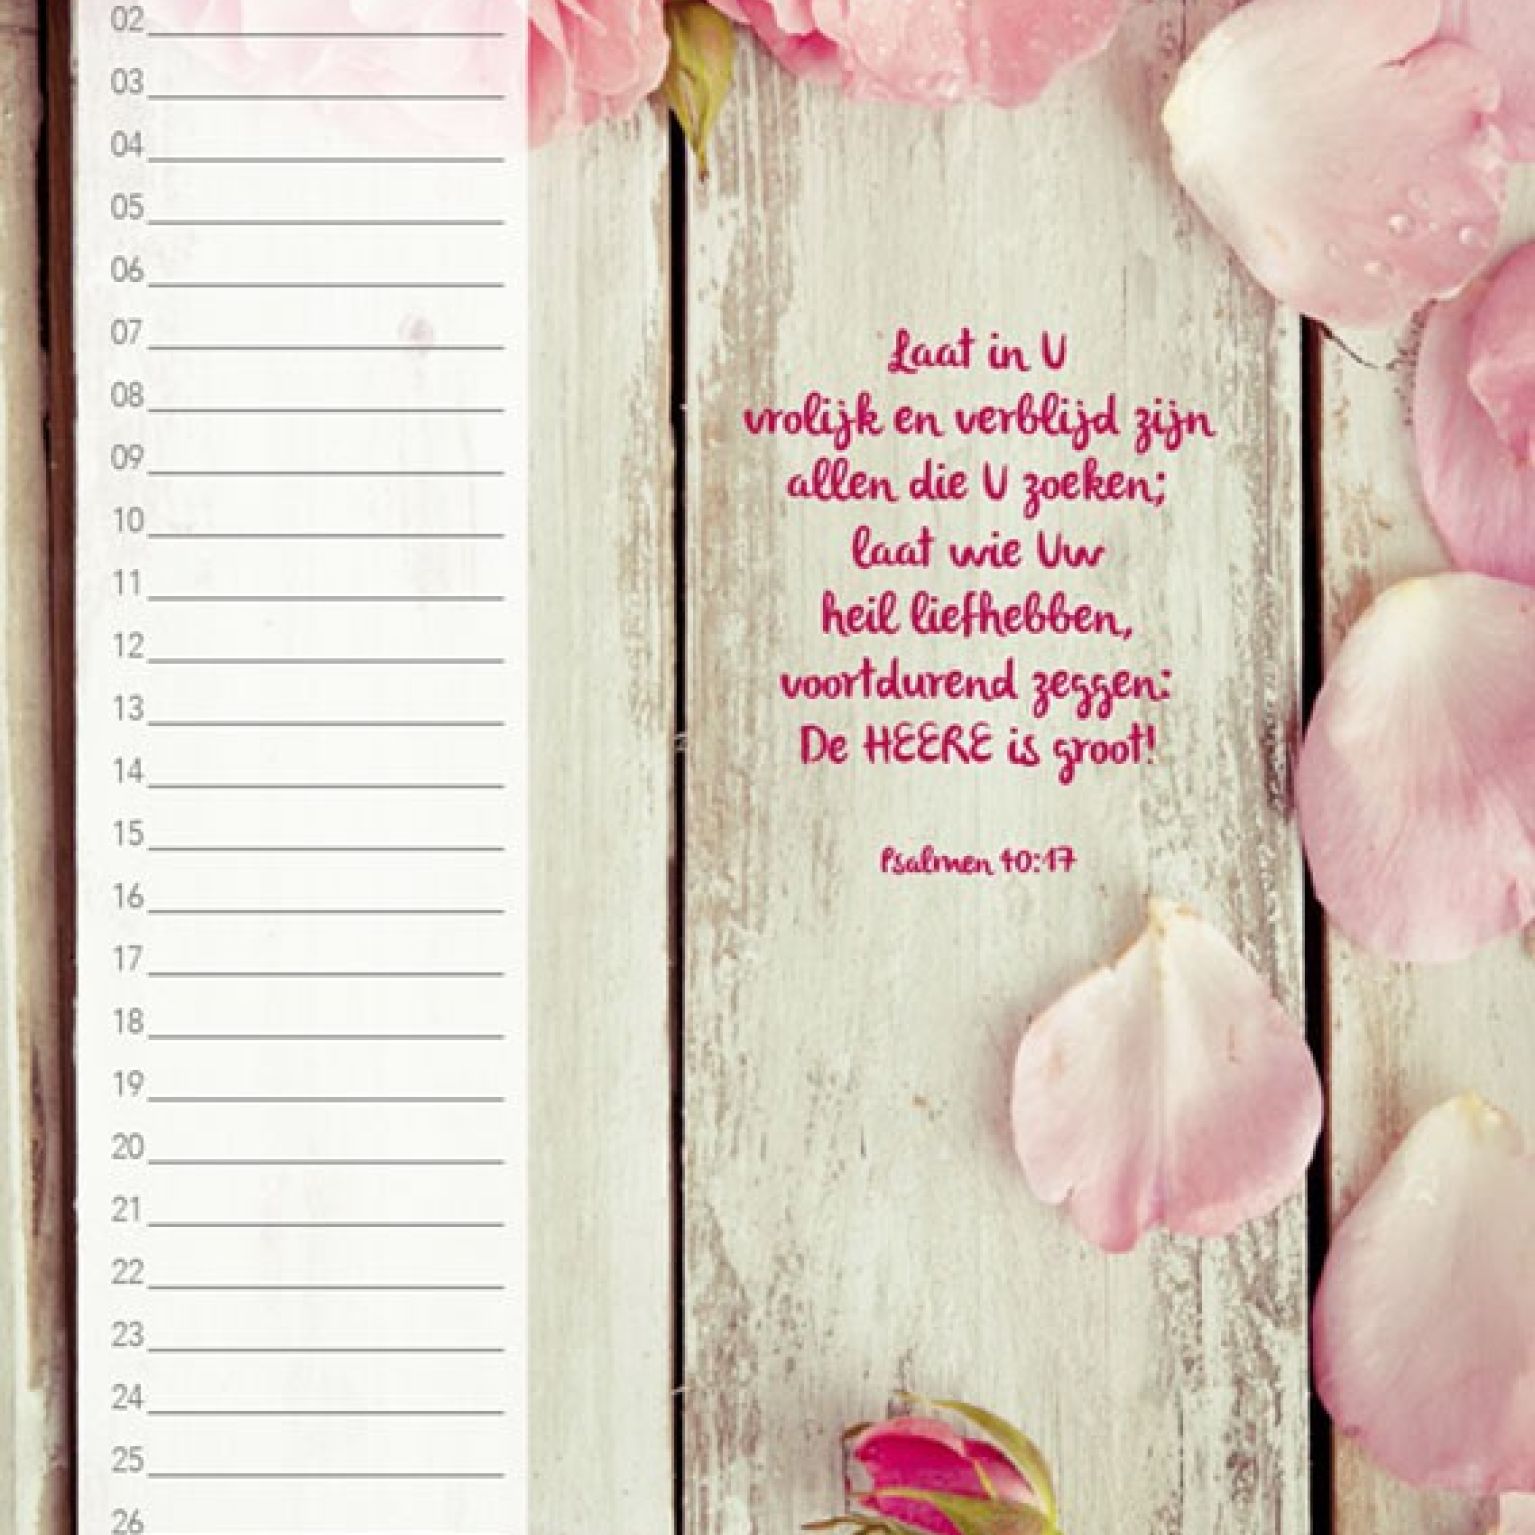 02
03
04
05
06
07
08
09
10
11
12
13
14
15
16
17
18
19
20
21
22
23
24
25
26
Laat in U
vrolijk en verblijd zijn
allen die U zoeken;
laat wie Uw
heil liefhebben,
voortdurend zeggen:
De HEERE is groot!
Psalmen 40:17